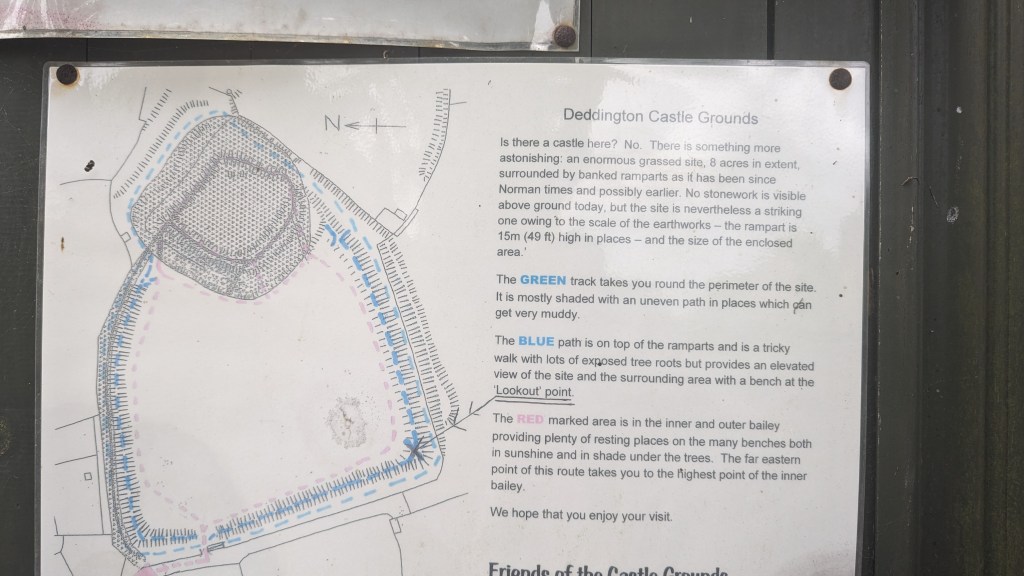 N
Deddington Castle Grounds
Is there a castle here? No. There is something more
astonishing: an enormous grassed site, 8 acres in extent,
surrounded by banked ramparts as it has been since
Norman times and possibly earlier. No stonework is visible
above ground today, but the site is nevertheless a striking
one owing to the scale of the earthworks – the rampart is
15m (49 ft) high in places – and the size of the enclosed
area.'
The GREEN track takes you round the perimeter of the site.
It is mostly shaded with an uneven path in places which can
get very muddy.
The BLUE path is on top of the ramparts and is a tricky
walk with lots of exposed tree roots but provides an elevated
view of the site and the surrounding area with a bench at the
'Lookout' point.
The RED marked area is in the inner and outer bailey
providing plenty of resting places on the many benches both
in sunshine and in shade under the trees. The far eastern
point of this route takes you to the highest point of the inner
bailey.
We hope that you enjoy your visit.
Friends of the Castle Grounds